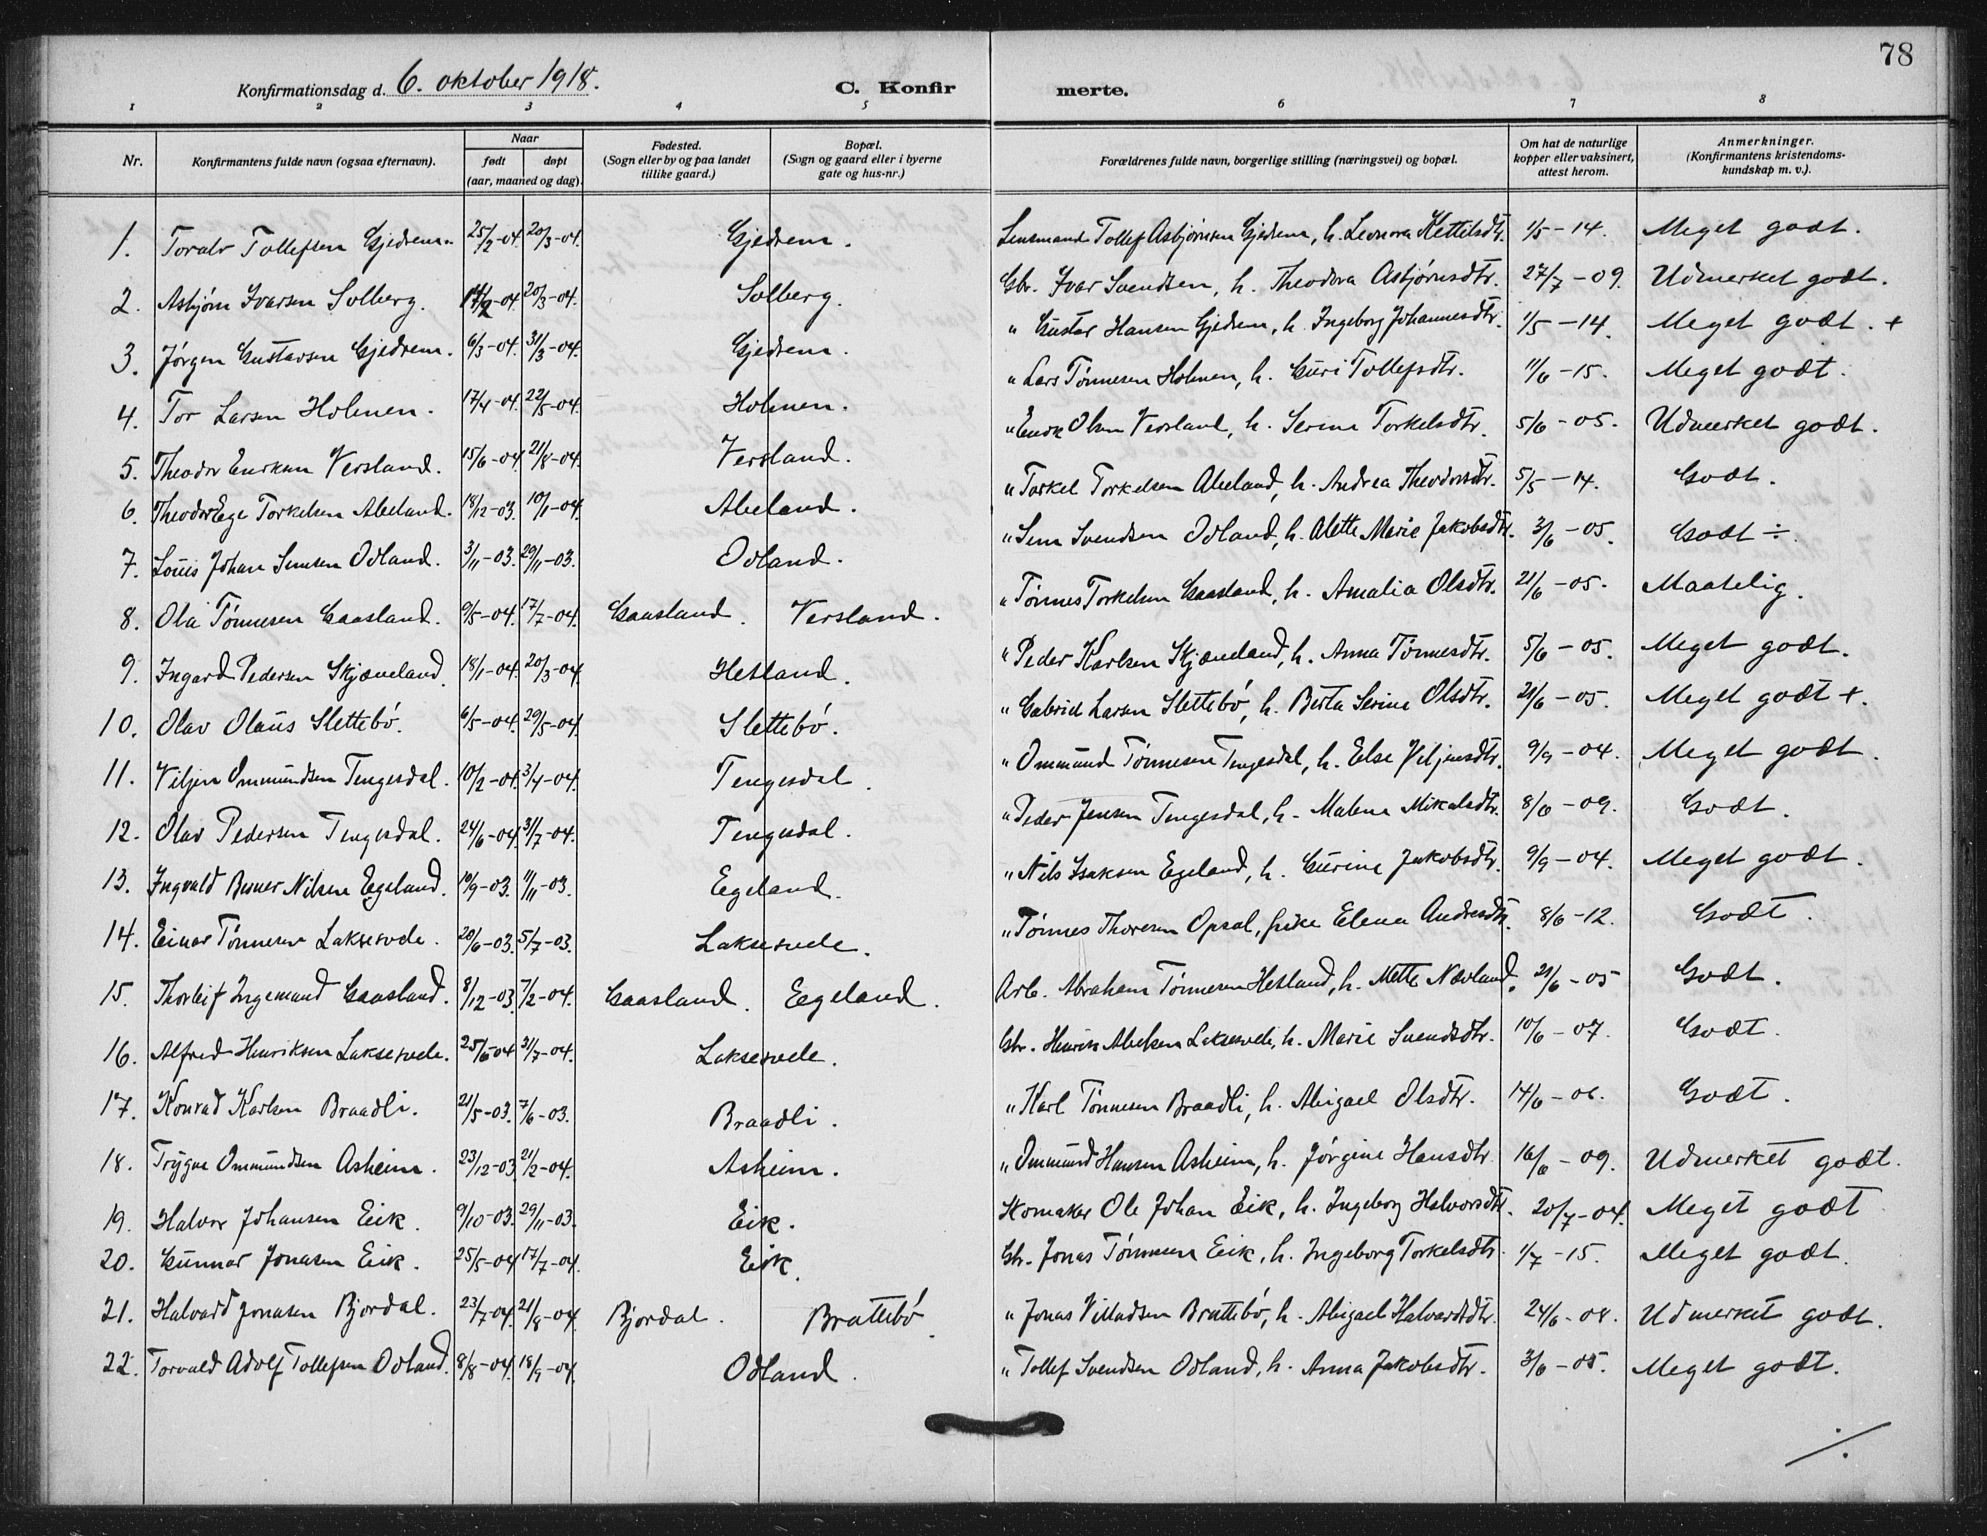 78
Konfirmationsdag d. 6. oktober 1918. C. Konfirmerte.
1 2 3 4 5 6 7 8
Nr. Konfirmantens fulde navn (ogsaa efternavn). Naar født døpt (aar, maaned og dag). Fødested. (Sogn eller by og paa landet tillike gaard.) Bopæl. (Sogn og gaard eller i byerne gate og hus-nr.) Forældrenes fulde navn, borgerlige stilling (næringsvei) og bopæl. Om hat de naturlige kopper eller vaksinert, attest herom. Anmerkninger. (Konfirmantens kristendoms-kundskap m. v.).
1. Toralv Tollefsen Gjedrem. 25/2-04. 20/3-04. Gjedrem. Lensmand Tollef Asbjørnsen Gjedrem, h. Leonora Kettilsdtr. 1/5-14. Meget godt.
2. Asbjørn Ivarsen Solberg. 14/2-04. 20/3-04. Solberg. Gbr. Ivar Svendsen, h. Theodora Asbjørnsdtr. 27/7-09. Udmerket godt.
3. Jørgen Gustavsen Gjedrem. 6/3-04. 31/3-04. Gjedrem. " Gustav Hansen Gjedrem, h. Ingeborg Johannesdtr. 1/5-14. Meget godt. +
4. Tor Larsen Holmen. 17/4-04. 22/5-04. Holmen. " Lars Tønnesen Holmen, h. Guri Tollefsdtr. 11/6-15. Meget godt.
5. Theodor Enersen Versland. 15/6-04. 21/8-04. Versland. " Olsen Versland, h. Serine Torkelsdtr. 5/6-05. Udmerket godt.
6. Theodor Ege Torkelsen Abeland. 18/12-03. 10/1-04. Abeland. " Torkel Torkelsen Abeland, h. Andrea Theodorsdtr. 5/5-14. Godt.
7. Louis Johan Simsen Odland. 3/11-03. 29/11-03. Odland. " Sem Svendsen Odland, h. Alette Marie Jakobsdtr. 3/6-05. Godt ÷.
8. Ola Tønnesen Gaasland. 9/5-04. 17/7-04. Gaasland. Versland. " Tønnes Torkelsen Gaasland, h. Amalia Olsdtr. 21/6-05. Maatelig.
9. Ingard Pedersen Skjæveland. 18/1-04. 20/3-04. Hetland. " Peder Karlsen Skjæveland, h. Anna Tønnesdtr. 5/6-05. Meget godt.
10. Olav Olaus Slettebó. 6/5-04. 29/5-04. Slettebó. " Gabriel Larsen Slettebó, h. Berta Serine Olsdtr. 21/6-05. Meget godt +.
11. Viljen Ommundsen Tengesdal. 10/2-04. 3/4-04. Tengesdal. " Ommund Tønnesen Tengesdal, h. Else Viljensdtr. 9/9-04. Meget godt.
12. Olav Pedersen Tengesdal. 24/6-04. 31/7-04. Tengesdal. " Peder Jensen Tengesdal, h. Malene Mikalsdtr. 8/6-09. Godt.
13. Ingvald Berner Nilsen Eegeland. 10/9-03. 1/11-03. Eegeland. " Nils Isaksen Egeland, h. Gurine Jakobsdtr. 9/9-04. Meget godt.
14. Einar Tønnesen Laksesvele. 20/6-03. 5/7-03. Laksesvele. " Tønnes Thoresen Opsal, pike Elena Andresdtr. 8/6-12. Godt.
15. Thorleif Ingemund Gaasland. 8/12-03. 7/2-04. Gaasland. Eegeland. Arb. Abraham Tønnesen Hetland, h. Mette Nævland. 21/6-05 Godt.
16. Alfred Henriksen Laksesvele. 25/6-04 31/7-04. Laksesvele. Gbr. Henrik Abelsen Laksesvele, h. Marie Svendsdtr. 10/6-07. Godt.
17. Konrad Karlsen Braadli. 21/5-03. 7/6-03. Braadli. " Karl Tønnesen Braadli, h. Abigael Olsdtr. 14/6-06. Godt.
18. Trygve Ommundsen Asheim. 23/12-03 21/2-04. Asheim. " Ommund Hansen Asheim, h. Jørgine Hansdtr. 16/6-09. Udmerket godt.
19. Halvor Johansen Eik. 9/10-03. 29/11-03. Eik. Skomaker Ole Johan Eik, h. Ingeborg Halvorsdtr. 20/7-04. Meget godt
20. Gunnar Jonasen Eik. 25/5-04 17/7-04. Eik. Gbr. Jonas Tønnesen Eik, h. Ingeborg Torkelsdtr. 1/7-15. Meget godt.
21. Halvard Jonasen Bjordal. 23/7-04. 21/8-04 Bjordal. Brattebó. " Jonas Villadsen Brattebó, h. Abigael Halvardsdtr. 24/6-08. Udmerket godt.
22. Torvald Adolf Tollefsen Odland. 8/8-04. 18/9-04. Odland. " Tollef Svendsen Odland, h. Anna Jakobsdtr. 3/6-05. Meget godt.
./.